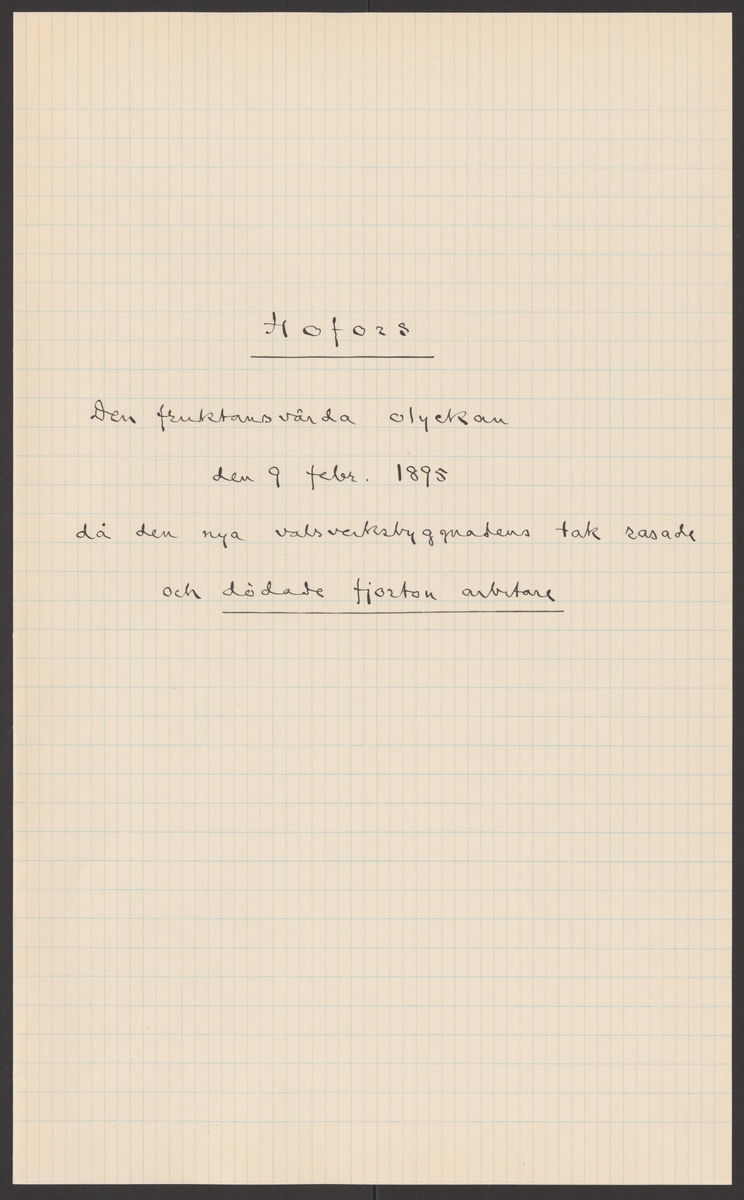 Hofors
Den fruktansvärda olyckan
den 9 febr. 1895
då den nya valsverksbyggnadens tak rasade
och dödade fjorton arbetare